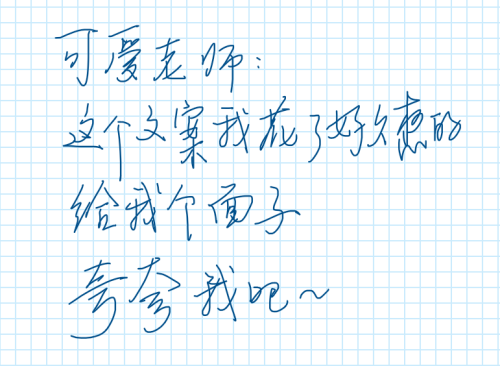 可爱老师：
这个文案我花了好久想的
给我个面子
夸夸我吧～